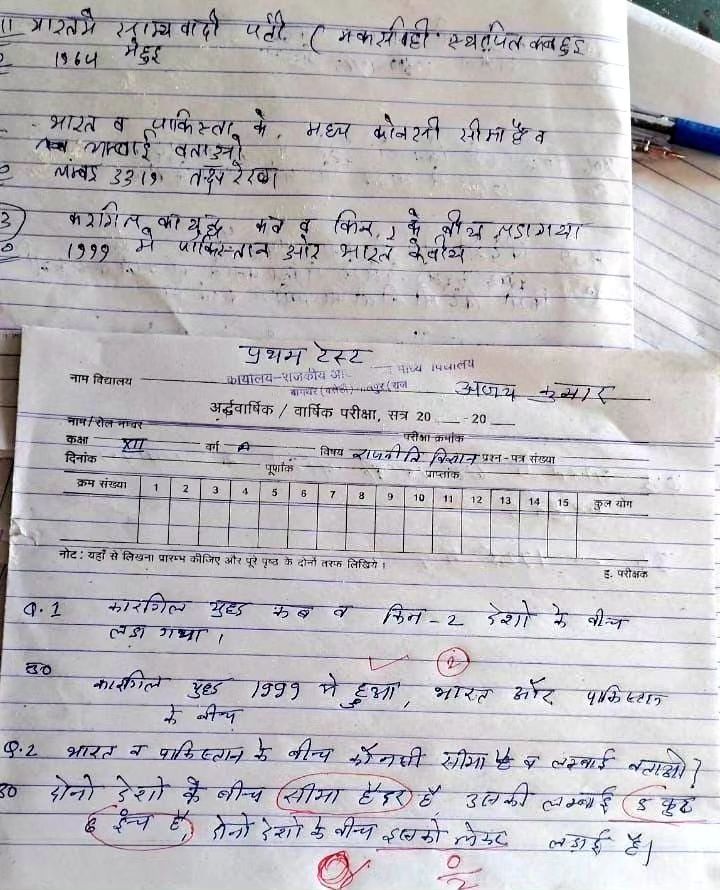 11 भारतमे साम्यवादी पर्टी ( मकर्सवादी स्थापित कब हुइ
1964 मेहुइ
भारत व पाकिस्ता के मध्य कोनसी सीमा है व
लम्बाई बताओ
लम्बइ 3319
करगिल का युद्ध कब व किन 2 के बीच लडा गया
1999 मे पाकिस्तान ओर भारत केबीच
प्रथम टेस्ट
कार्यालय-राजकीय
नाम विद्यालय अजय कुमार
अर्द्धवार्षिक / वार्षिक परीक्षा, सत्र 20 ___ -20 ___
नाम/रोल नम्बर परीक्षा क्रमांक
कक्षा XII वर्ग A विषय राजनीति विज्ञान प्रश्न-पत्र संख्या
दिनांक पूर्णांक प्राप्तांक
क्रम संख्या 1 2 3 4 5 6 7 8 9 10 11 12 13 14 15 कुल योग
नोट: यहाँ से लिखना प्रारम्भ कीजिए और पूरे पृष्ठ के दोनों तरफ लिखिये।
ह. परीक्षक
Q.1 कारगिल युद्ध कब व किन-2 देशो के बीच
लडा गया।
उ0 कारगिल युद्ध 1999 मे हुआ, भारत और पाकिस्तान
के बीच
Q.2 भारत व पाकिस्तान के बीच कौनसी सीमा है व लम्बाई बताओ?
उ0 दोनो देशो के बीच सीमा हैदर है, उसकी लम्बाई 5 फुट
6 इंच है, दोनो देशो के बीच इसको लेकर लड़ाई है।
0/2